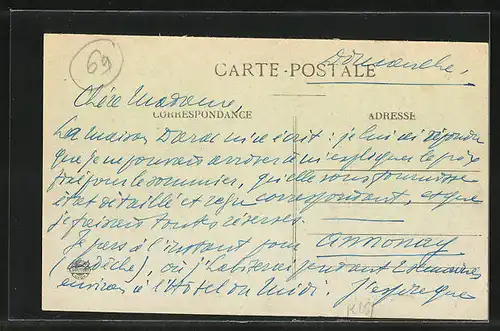 69
Dimanche,
CARTE-POSTALE
Chère Madame,
CORRESPONDANCE ADRESSE
La maison Darac m'écrit : je lui ai répondu
que je ne pouvais arriver à m'expliquer le prix
fixé pour le sommier, qu'elle vous fournisse
état détaillé et reçu correspondant, et que
je faisais toutes réserves.
Je pars à l'instant pour Annonay
(Ardèche), où j'habiterai pendant 2 semaines
environ à l'Hôtel du Midi. J'espère que